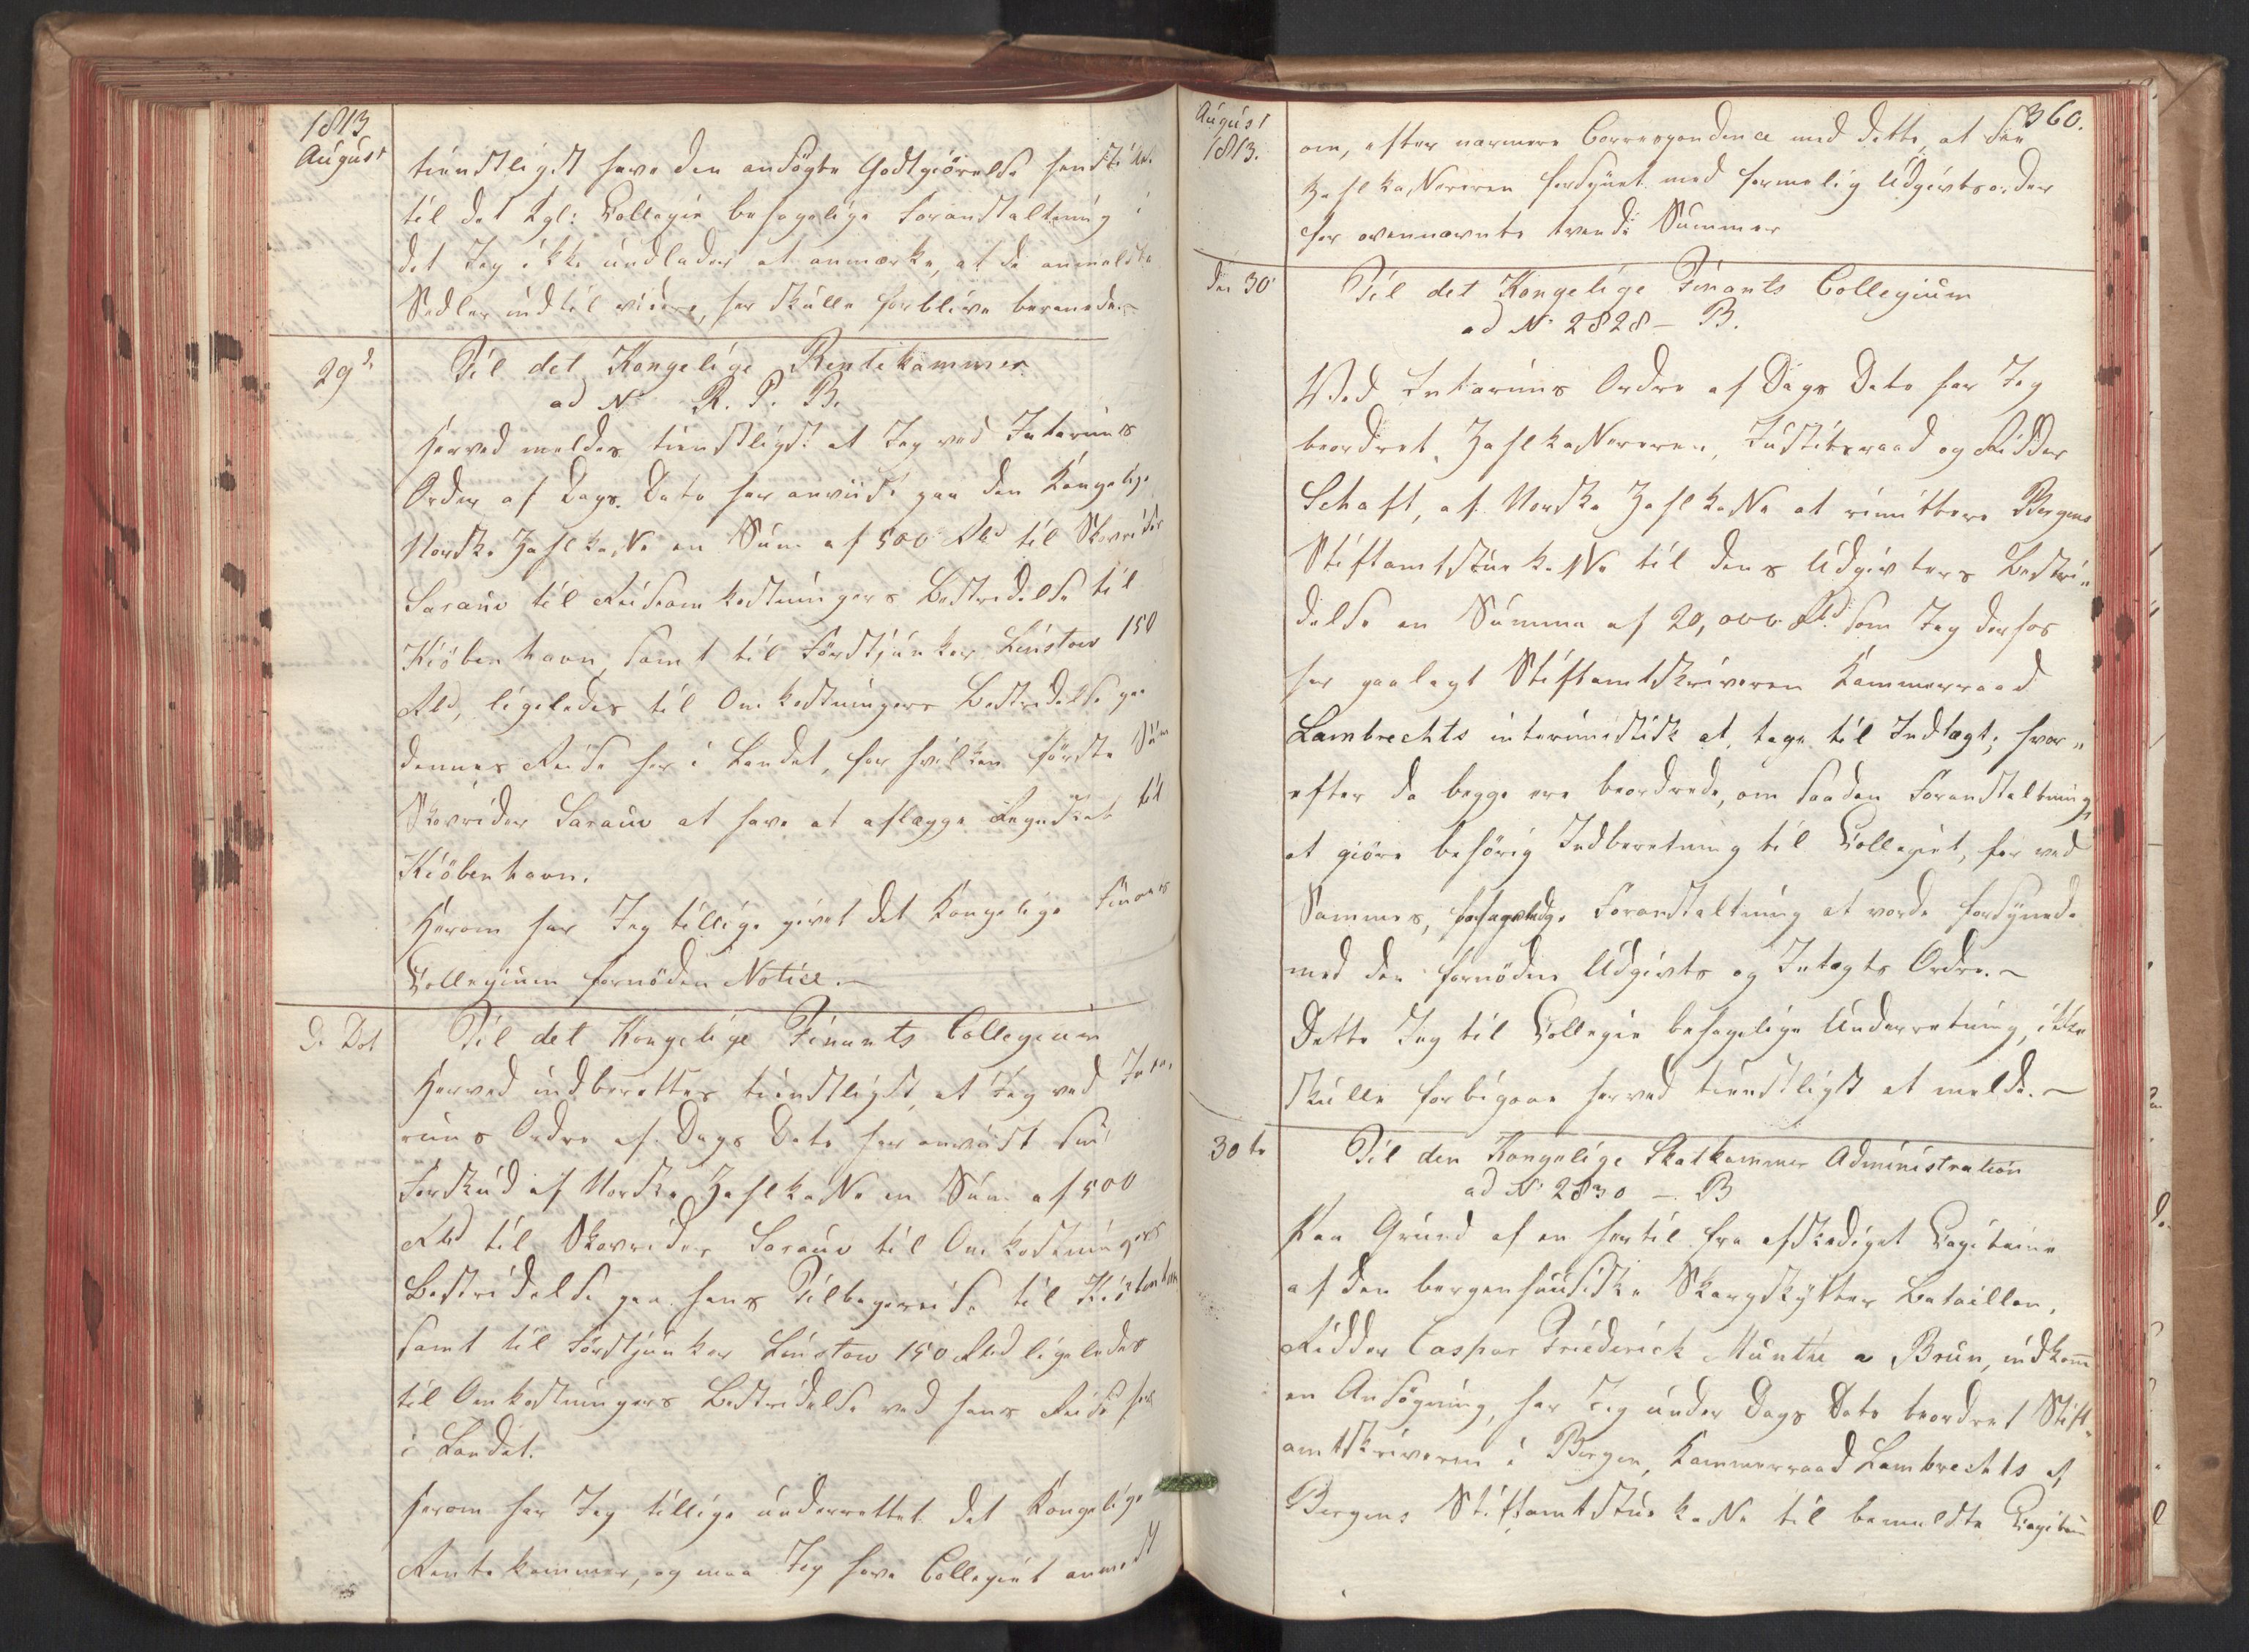 1813
August
tienstligst have den ansøgte Godtgiørelse henstillet
til det Kgl: Collegie behagelige Foranstaltning i
det Jeg ikke undlader at anmærke, at de anmeldte
Sedler indtil videre, her skulle forblive beroende.
29d
Til det Kongelige Rentekammer
ad No R. P. B.
Herved meldes tienstligst at Jeg ved Interims
Ordre af Dags Dato har anviist paa den Kongelige
Norske Zahlkasse en Sum af 500 Rbd til Skovrider
Sarauw til Reiseomkostningers Bestridelse til
Kiöbenhavn, samt til Forstjunker Linstow 150
Rbd, ligeledes til Omkostningers Bestridelse paa
dennes Reise her i Landet, for hvilken første Sum
Skovrider Sarauw at have at aflægge Regnskab til
Kiöbenhavn.
Herom har Jeg tillige givet det Kongelige Finants
Collegium fornöden Notice.
D. Dot
Til det Kongelige Finants Collegium
Herved indberettes tienstligst, at Jeg ved Inte,
rims Ordre af Dags Dato har anviist som
Forskud af Norske Zahlkasse en Sum af 500
Rbd til Skovrider Sarauw til Omkostningers
Bestridelse paa hans Tilbagereise til Kiöbenhavn
samt til Forstjunker Linstow 150 Rbd ligeledes
til Omkostningers Bestridelse ved hans Reise her
i Landet.
herom har Jeg tillige underrettet det Kongelige
Rentekammer, og maa Jeg have Collegiet anmodet
August
1813.
360.
om, efter nærmere Correspondence med dette, at see
Zahlkassereren forsynet med formelig Udgivtsordre
for ovennævnte tvende Summer
den 30'
Til det Kongelige Finants Collegium
ad No 2828 - B.
Ved Interims Ordre af Dags Dato har Jeg
beordret, Zahlkassereren, Justitsraad og Ridder
Schaft, af Norske Zahlkasse at remittere Bergens
Stiftamtstue Kasse til dens Udgivters Bestri„
delse en Summa af 20,000 Rbd som Jeg derhos
har paalagt Stiftamtskriveren Kammerraad
Lambrechts interimistisk at tage til Indtægt; hvor„
efter da begge ere beordrede, om saadan Foranstaltning,
at giöre behörig Indberetning til Collegiet, for ved
Sammes, behagelige Foranstaltning at vorde forsynede
med den fornödne Udgivts og Intægts Ordre.
Dette Jeg til Collegie behagelige Underretning, ikke
skulle forbigaae herved tienstligst at melde.
30te
Til den Kongelige Skatkammer Administration
ad No 2830 - B
Paa Grund af en hertil fra afskediget Capitaine
af den bergenhuusiske Skarpskytter Bataillon,
Ridder Caspar Friederick Munthe a Brun, indkom̅
en Ansögning, har Jeg under Dags Dato beordret Stift„
amtskriveren i Bergen, Kammerraad Lambrechts af
Bergens Stiftamtstue Kasse til bemeldte Capitain